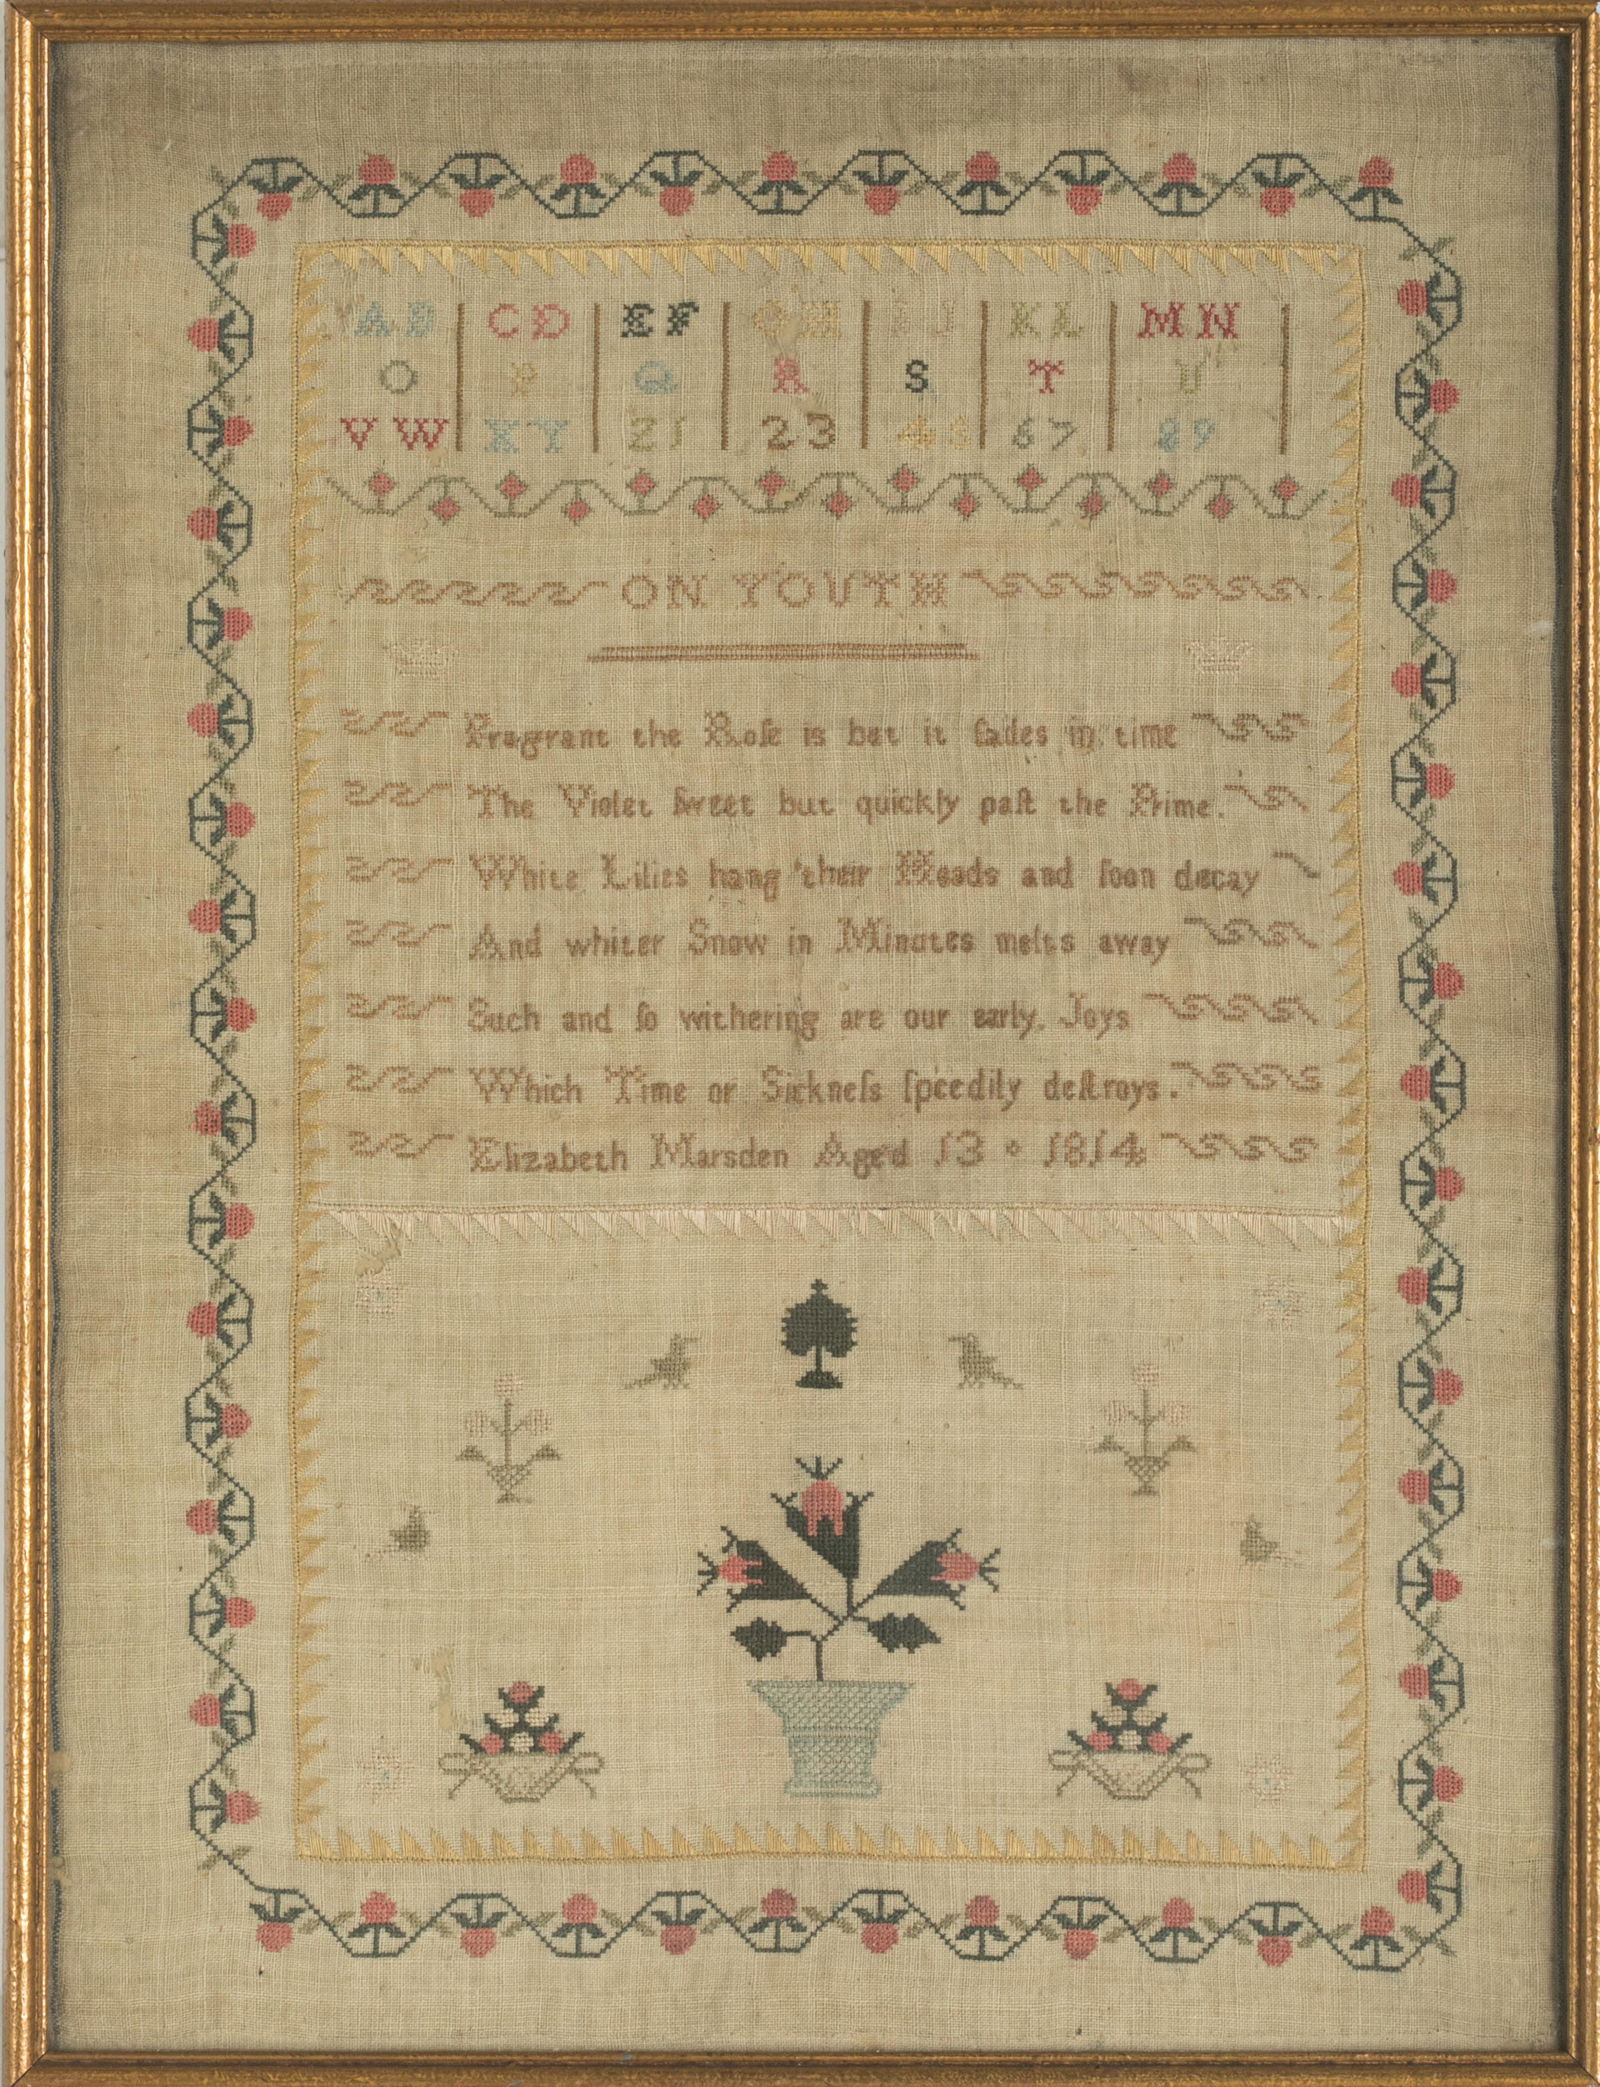 AB CD EF GH IJ KL MN
O P Q R S T U
VW XY Z1 23 45 67 89
ON YOUTH
Fragrant the Roſe is but it fades in time
The Violet ſweet but quickly paſt the Prime.
White Lilies hang their Heads and ſoon decay
And whiter Snow in Minutes melts away
Such and ſo withering are our early Joys
Which Time or Sickneſs ſpeedily deſtroys.
Elizabeth Marsden Aged 13 1814